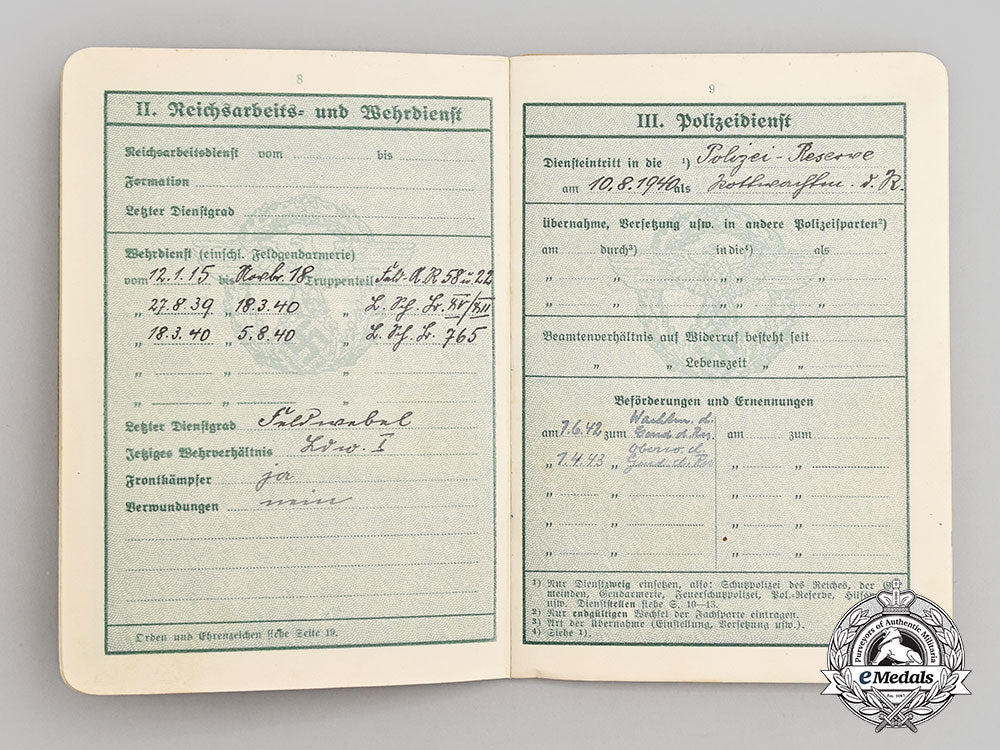 8
II. Reichsarbeits- und Wehrdienst
Reichsarbeitsdienst vom bis
Formation
Letzter Dienstgrad
Wehrdienst (einschl. Feldgendarmerie)
vom 12.1.15 bis Novbr. 18 Truppenteil Feld-A.R 58 u. 22
„ 27.8.39 „ 18.3.40 „ L. Sch. Br. XV/XII
„ 18.3.40 „ 5.8.40 „ L. Sch. Br. 765
„ „ „
„ „ „
Letzter Dienstgrad Feldwebel
Jetziges Wehrverhältnis Ldw. I
Frontkämpfer ja
Verwundungen nein
Orden und Ehrenzeichen siehe Seite 19.
9
III. Polizeidienst
Diensteintritt in die ¹) Polizei-Reserve
am 10.8.1940 als Rottwachtm. d. R.
Übernahme, Versetzung usw. in andere Polizeisparten²)
am durch³) in die⁴) als
„ „ „ „ „
„ „ „ „ „
Beamtenverhältnis auf Widerruf besteht seit
„ „ Lebenszeit „ „
Beförderungen und Ernennungen
am 7.6.42 zum Wachtm. d. Gend. d. Res. am zum
„ 1.4.43 „ Oberw. d. Gend. d. Res „ „
„ „ „ „
„ „ „ „
„ „ „ „
¹) Nur Dienstzweig einsetzen, also: Schutzpolizei des Reiches, der Ge-
meinden, Gendarmerie, Feuerschutzpolizei, Pol.-Reserve, Hilfs
usw. Dienststellen siehe S. 10—13.
²) Nur endgültigen Wechsel der Fachsparte eintragen.
³) Art der Übernahme (Einstellung, Versetzung usw.).
⁴) Siehe ¹).
Purveyors of Authentic Militaria
eMedals